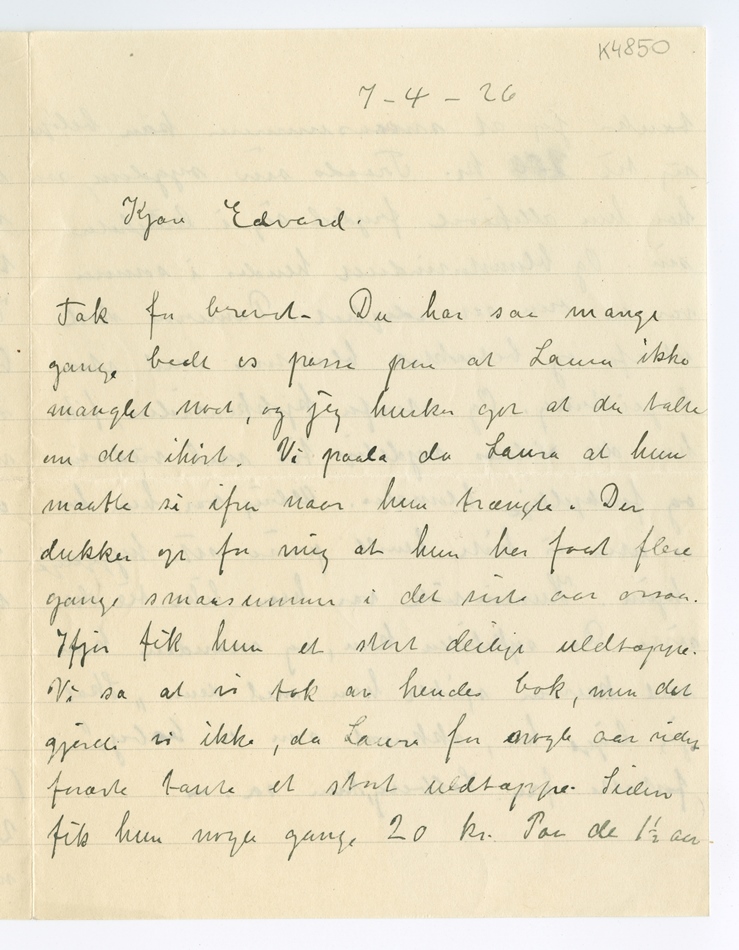 K4850
7-4-26
Kjære Edvard.
Tak for brevet. Du har saa mange
gange bedt os passe paa at Laura ikke
manglet noget, og jeg husker godt at du talte
om det ihøst. Vi paala da Laura at hun
maatte si ifra naar hun trængte. Der
dukker op for mig at hun har faat flere
gange smaasummer i det siste aar ogsaa.
Ifjor fik hun et stort deilige uldtæppe.
Vi sa at vi tok av hendes bok, men det
gjorde vi ikke, da Laura for nogle aar siden
forærte tante et stort uldtæppe. Siden
fik hun nogle gange 20 kr. Paa de 1½ aar